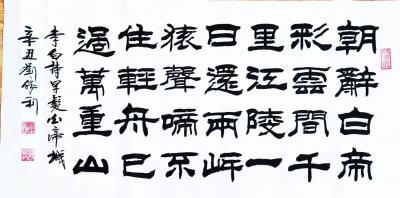 朝辭白帝
彩雲間千
里江陵一
日還兩岸
猿聲啼不
住輕舟已
過萬重山
李白詩早發白帝城
辛丑劉利